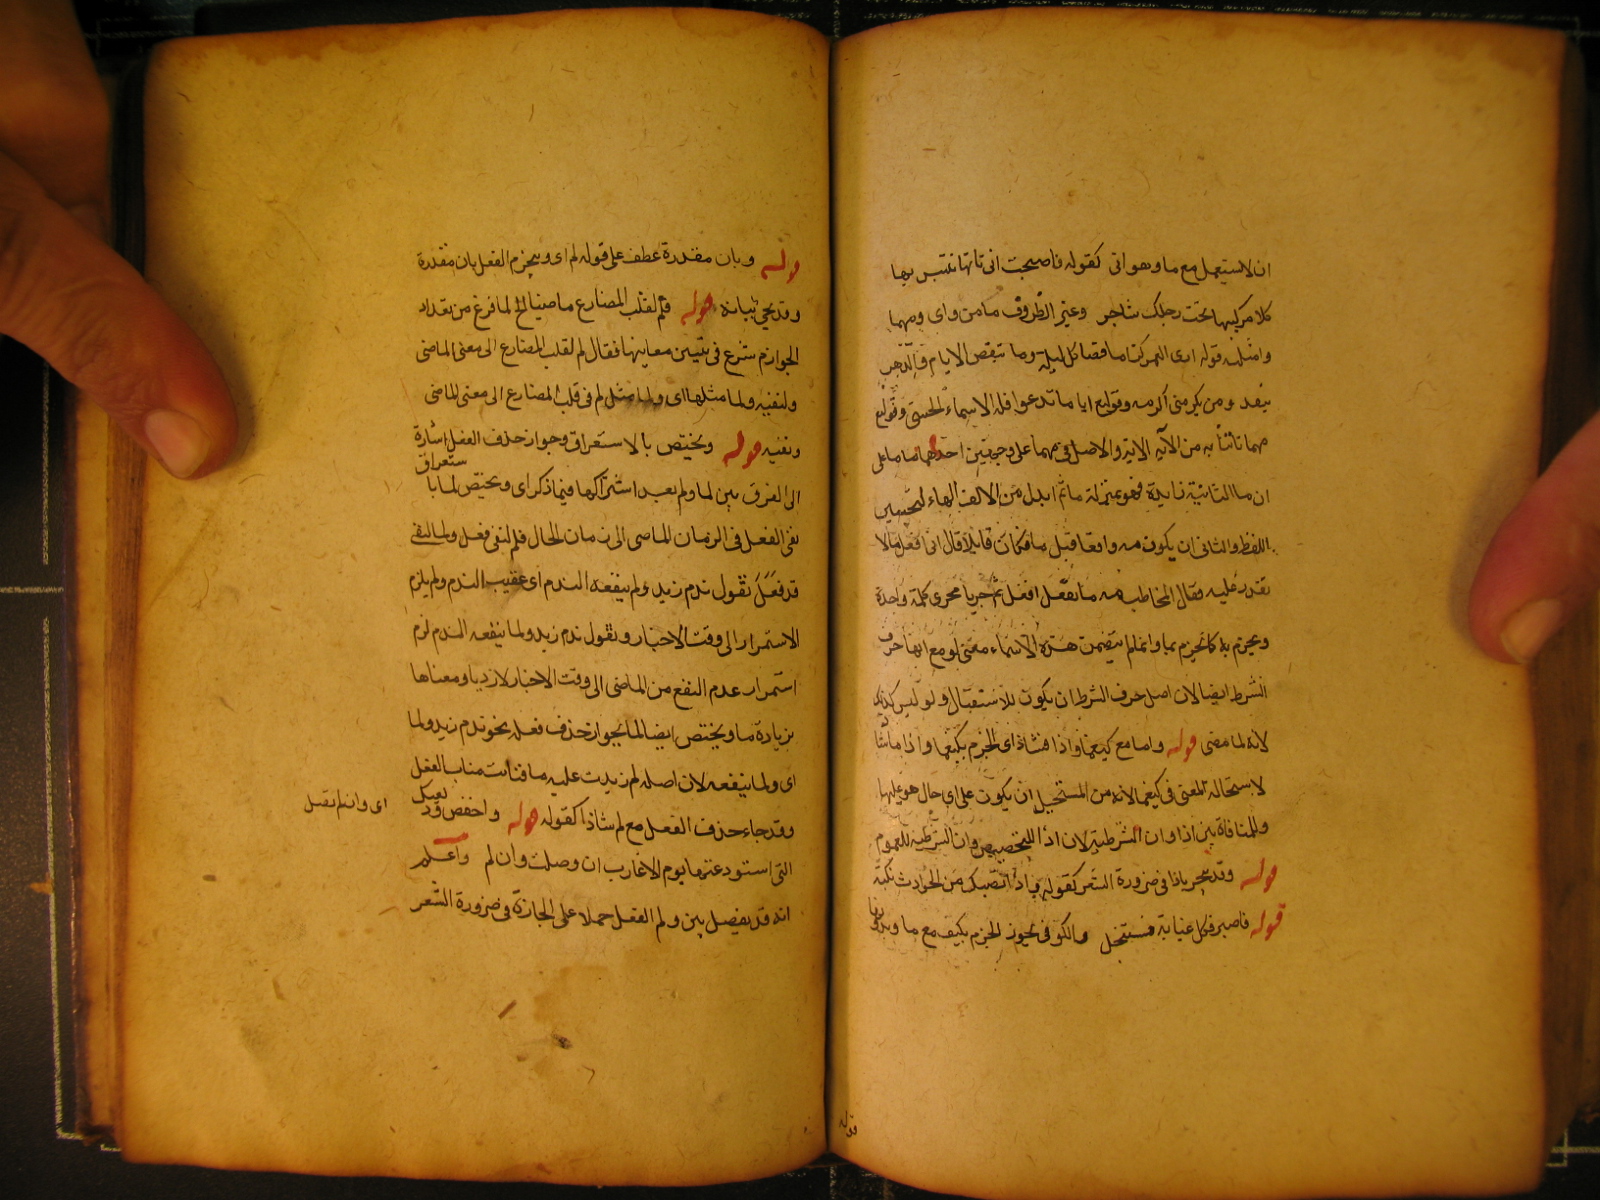 ان لا يستعمل مع ما وهو انى كقوله فاصبحت انى تاتها تلتبس بها
كلا مركبيها تحت رجلك شاجر وغير الظروف ما من واى ومهما
وامثلته قوله ارى العمر كنزا ناقصا كل ليلة وما تنقص الايام والدهر
ينفد ومن يكرمنى اكرمه وقوله ايا ما تدعوا فله الاسماء الحسنى وقوله
مهما تاتنا به من الآية الآية والاصل فى مهما على وجهين احدهما ما ما على
ان ما الثانية زايدة فهو بمنزلة ما ثم ابدل من الالف الهاء لتحسين
اللفظ والثانى ان يكون مه واقعا قبل ما فكان قايلا قال انى افعل ما لا
تقدر عليه فقال المخاطب مه ما تفعل افعل ثم جريا مجرى كلمة واحدة
ويجزم به كما يجزم بما وانما لم يتضمن هذه الاسماء معنى لو مع انها حرف
الشرط ايضا لان اصل حرف الشرط ان يكون للاستقبال ولو ليس كذلك
لانه لما مضى قوله واما مع كيفما واذا فشاذ اى الجزم بكيفما واذا ما شاذ
لاستحالة المعنى فى كيفما لانه من المستحيل ان يكون على اى حال هو عليها
وللمنافاة بين اذا وان الشرطية لان اذا للتخصيص وان الشرطية للعموم
قوله وقد يجزم باذا فى ضرورة الشعر كقوله واذا تصبك من الحوادث نكبة
قوله فاصبر فكل غيابة فستنجلى والكوفى يجوز الجزم بكيف مع ما وبدونها
قوله
قوله وبان مقدرة عطف على قوله لم اى وينجزم الفعل بان مقدرة
وقد يجئ بيانه قوله فلم لقلب المضارع ماضيا الخ لما فرغ من تعداد
الجوازم شرع فى تبيين معانيها فقال لم لقلب المضارع الى معنى الماضى
ولنفيه ولما مثلها اى ولما مثل لم فى قلب المضارع الى معنى الماضى
ونفيه قوله ويختص بالاستغراق وجواز حذف الفعل اشارة
الى الفرق بين لما ولم بعد اشتراكهما فيما ذكر اى ويختص لما با
ستغراق
نفى الفعل فى الزمان الماضى الى زمان الحال فلم لنفى فعل ولما لنفى
قد فعل تقول ندم زيد ولم ينفعه الندم اى عقيب الندم ولم يلزم
الاستمرار الى وقت الاخبار وتقول ندم زيد ولما ينفعه الندم لزم
استمرار عدم النفع من الماضى الى وقت الاخبار لازدياد معناها
بزيادة ما ويختص ايضا لما بجواز حذف فعله نحو ندم زيد ولما
اى ولما ينفعه لان اصله لم زيدت عليه ما فنابت مناب الفعل
وقد جاء حذف الفعل مع لم شاذا كقوله قوله واحفظ وديعتك
التى استودعتها يوم الاغارب ان وصلت وان لم واعلم
اى وان لم تصل
انه قد يفصل بين ولم الفعل حملا على الجازة فى ضرورة الشعر